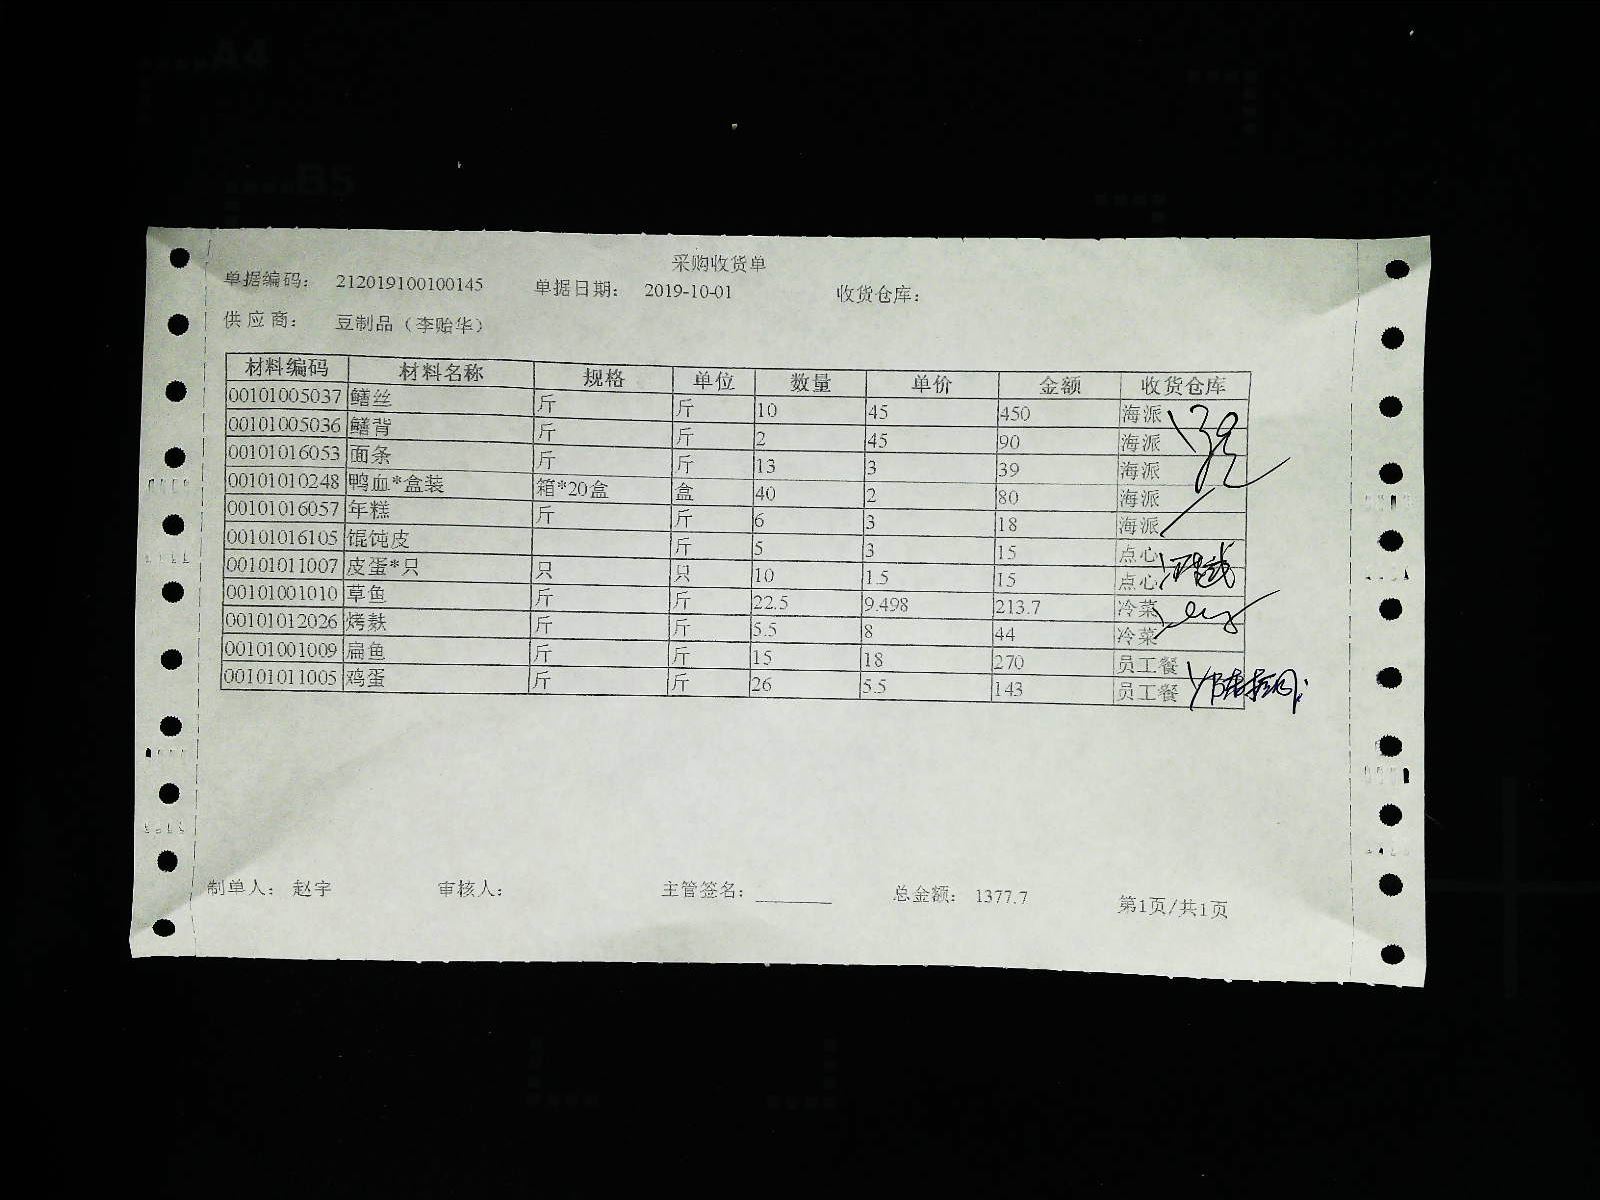 A4
B5
采购收货单
单据编码： 212019100100145 单据日期： 2019-10-01 收货仓库：
供应商： 豆制品（李贻华）
材料编码 材料名称 规格 单位 数量 单价 金额 收货仓库
00101005037 鳝丝 斤 斤 10 45 450 海派
00101005036 鳝背 斤 斤 2 45 90 海派
00101016053 面条 斤 斤 13 3 39 海派
00101010248 鸭血*盒装 箱*20盒 盒 40 2 80 海派
00101016057 年糕 斤 斤 6 3 18 海派
00101016105 馄饨皮 斤 5 3 15 点心
00101011007 皮蛋*只 只 只 10 1.5 15 点心
00101001010 草鱼 斤 斤 22.5 9.498 213.7 冷菜
00101012026 烤麸 斤 斤 5.5 8 44 冷菜
00101001009 扁鱼 斤 斤 15 18 270 员工餐
00101011005 鸡蛋 斤 斤 26 5.5 143 员工餐
制单人： 赵宇 审核人： 主管签名： 总金额： 1377.7 第1页/共1页